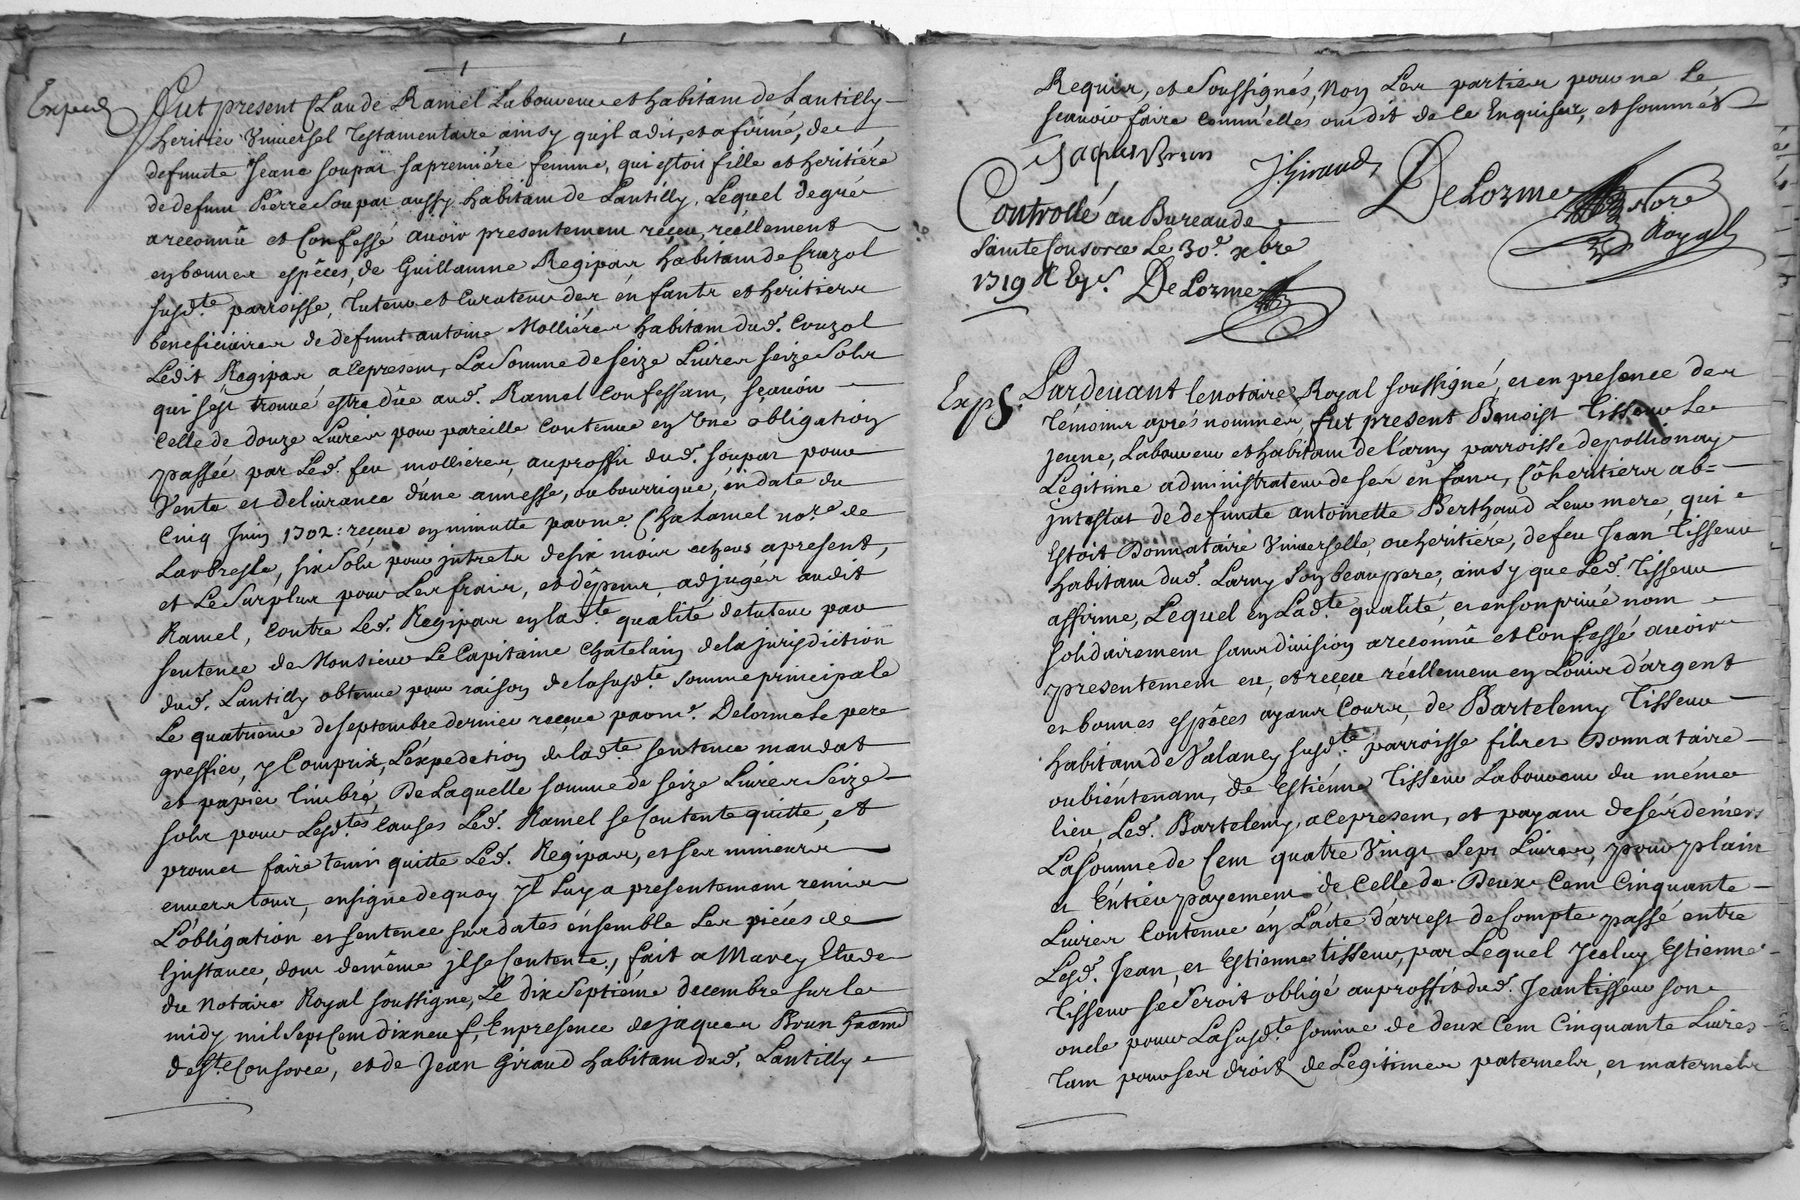 Exped
Fut present Claude Ramel Laboureur et habitant de Lantilly
heritier Universel Testamentaire ainsy qu'jl a dit, et afirmé, de
defunte Jeane soupat sa premiére femme, qui estoit fille et heritiére
de defunt Pierre Soupat aussy habitant de Lantilly, Lequel de gré
a reconnû et Confessé avoir presentement receu, réellement
en bonnes espêces, de Guillaume Regipas habitant de Cruzol
susd.te parroisse, Tuteur et Curateur des enfants et heritiers
beneficiaires de defunt antoine Molliéres habitant dud. Cruzol
Ledit Regipas a Ce present, La Somme de seize Livres seize Sols
qui s'est trouvé estre dûe aud. Ramel Confessant, sçavoir
Celle de douze Livres pour pareille Contenue en Vne obligation
passée par Led. feu mollieres, au proffit dud. soupat pour
Vente et delivrance d'une annesse, ou bourrique, en date du
Cinq Juin 1702: receue en minutte par me. Chalamel no.re de
Larbresle, six Sols pour jntrets de six mois echeus a present,
et Le Surplus pour Les frais, et dêpens, adjugés audit
Ramel, Contre Led. Regipas en lad.te qualité de tuteur par
sentence de Monsieur Le Capitaine Chatelain de la Jurisdiction
dud. Lantilly obtenue pour raison de la susd.te Somme principale
Le quatriême de septembre dernier receue par me. Delorme Le pere
greffier, y Compris, L'expedition de lad.te sentence mandat
et papier Timbré, De Laquelle somme de seize Livres Seize
sols pour Lesd.tes Causes Led. Ramel se Contente quitte, et
promet faire tenir quitte Led. Regipas, et ses mineurs
envers tous, en signe de quoy jl Luy a presentement remis
L'obligation et sentence sus datés énsemble Les piéces de
L'jnstance, dont de même jl se Contente, fait a Marcy Etude
du Notaire Royal soussigné, Le dix Septiéme decembre sur le
midy mil Sept Cent dix neuf, En presence de jaques Brun
de St.e Consorce, et de Jean Giraud habitant dud. Lantilly
Requis, et Soussignés, Non Les parties pour ne Le
scavoir faire Comm'elles ont dit de Ce Enquises, et sommés
Jaques Brun
J Giraud
DeLorme
Nore
Royal
Controllé au Bureau de
Sainte Consorce Le 30e. xbre
1719 DeLorme
Exp
Pardevant le notaire Royal soussigné, et en presence des
Témoins aprés nommés, fut present Benoist Tisseur Le
jeune, Laboureur et habitant de Larny parroisse de pollionay
Legitime administrateur de ses enfans, Côheritiers ab=
jntestat de defunte antoinette Berthaud Leur mere, qui
Estoit Donnataire Universelle, ou heritiére, de feu Jean Tisseur
habitant dud. Larny Son beaupere, ainsy que Led. Tisseur
affirme, Lequel en Lad.te qualité, et en son privé nom
solidairement sans division a reconnû et Confessé avoir
presentement eu, et receu réellement en Louis d'argent
et bonnes espêces ayans Cours, de Bartelemy Tisseur
habitant de Valaney susd.te parroisse fils et Donnataire
ou biéntenant, de Estiénne Tisseur Laboureur du méme
lieu, Led. Bartelemy, a Ce present, et payant de ses deniers
La Somme de Cent quatre Vingt Sept Livres, pour plain
et Entier payement de Celle de Deux Cent Cinquante
Livres Contenue én L'acte d'arrest de Compte passé entre
Lesd. Jean, et Estienne tisseur, par Lequel Jceluy Estienne
Tisseur se Seroit obligé au proffit dud. Jean tisseur son
oncle pour La susd.te somme de deux Cent Cinquante Livres
Tant pour ses droits de Legitimes paternels, et maternels